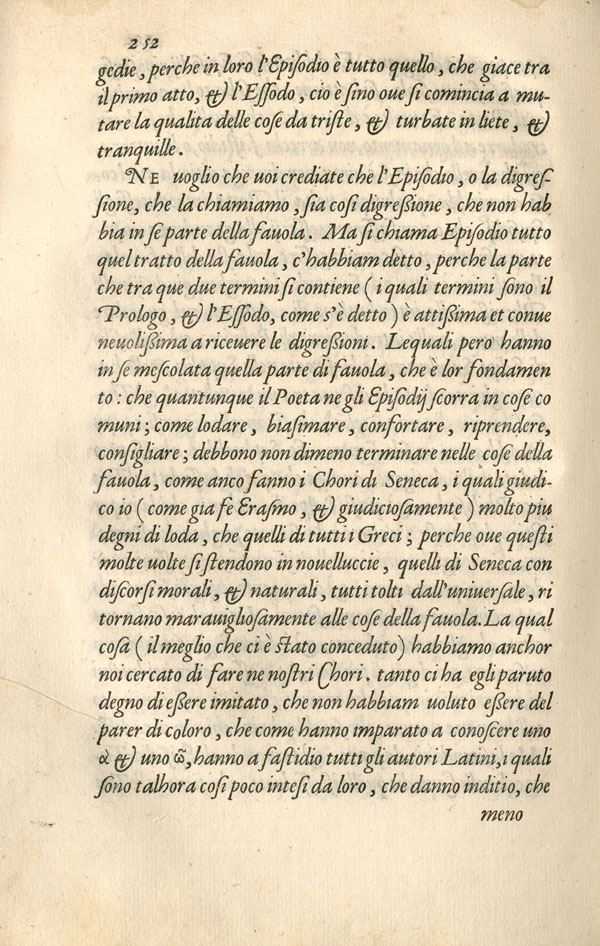 252
gedie, perche in loro l'Episodio è tutto quello, che giace tra
il primo atto, & l'Essodo, cio è sino oue si comincia a mu-
tare la qualita delle cose da triste, & turbate in liete, &
tranquille.
NE uoglio che uoi crediate che l'Episodio, o la digres-
sione, che la chiamiamo, sia cosi digreßione, che non hab
bia in se parte della fauola. Ma si chiama Episodio tutto
quel tratto della fauola, c'habbiam detto, perche la parte
che tra que due termini si contiene ( i quali termini sono il
Prologo, & l'Essodo, come s'è detto ) è attißima et conue
neuolißima a riceuere le digreßioni. Lequali pero hanno
in se mescolata quella parte di fauola, che è lor fondamen
to: che quantunque il Poeta ne gli Episodij scorra in cose co
muni; come lodare, biasimare, confortare, riprendere,
consigliare; debbono non dimeno terminare nelle cose della
fauola, come anco fanno i Chori di Seneca, i quali giudi-
co io ( come gia fe Erasmo, & giudiciosamente ) molto piu
degni di loda, che quelli di tutti i Greci; perche oue questi
molte uolte si stendono in nouelluccie, quelli di Seneca con
discorsi morali, & naturali, tutti tolti dall'uniuersale, ri
tornano marauigliosamente alle cose della fauola. La qual
cosa ( il meglio che ci è stato conceduto) habbiamo anchor
noi cercato di fare ne nostri Chori. tanto ci ha egli paruto
degno di eßere imitato, che non habbiam uoluto eßere del
parer di coloro, che come hanno imparato a conoscere uno
ὰ & uno ῶ, hanno a fastidio tutti gli autori Latini, i quali
sono talhora cosi poco intesi da loro, che danno inditio, che
meno